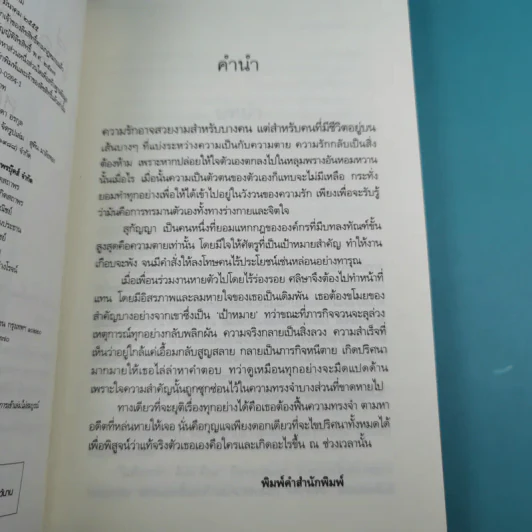 คำนำ
ความรักอาจสวยงามสำหรับบางคน แต่สำหรับคนที่มีชีวิตอยู่บน
เส้นบางๆ ที่แบ่งระหว่างความเป็นกับความตาย ความรักกลับเป็นสิ่ง
ต้องห้าม เพราะหากปล่อยให้ใจตัวเองตกลงไปในหลุมพรางอันหอมหวาน
นั้นเมื่อไร เมื่อนั้นความเป็นตัวตนของตัวเองก็แทบจะไม่มีเหลือ กระทั่ง
ยอมทำทุกอย่างเพื่อให้ได้เข้าไปอยู่ในวังวนของความรัก เพียงเพื่อจะรับรู้
ว่ามันคือการทรมานตัวเองทั้งทางร่างกายและจิตใจ
สุกัญญา เป็นคนหนึ่งที่ยอมแหกกฎขององค์กรที่มีบทลงทัณฑ์ขั้น
สูงสุดคือความตายเท่านั้น โดยมีใจให้ศัตรูที่เป็นเป้าหมายสำคัญ ทำให้งาน
เกือบจะพัง จนมีคำสั่งให้ลงโทษคนไร้ประโยชน์เช่นหล่อนอย่างทารุณ
เมื่อเพื่อนร่วมงานหายตัวไปโดยไร้ร่องรอย ศลิษาจึงต้องไปทำหน้าที่
แทน โดยมีอิสรภาพและลมหายใจของเธอเป็นเดิมพัน เธอต้องขโมยของ
สำคัญบางอย่างจากเขาซึ่งเป็น ‘เป้าหมาย’ ทว่าขณะที่ภารกิจจวนจะลุล่วง
เหตุการณ์ทุกอย่างกลับพลิกผัน ความจริงกลายเป็นสิ่งลวง ความสำเร็จที่
เห็นว่าอยู่ใกล้แค่เอื้อมกลับสูญสลาย กลายเป็นภารกิจหนีตาย เกิดปริศนา
มากมายให้เธอไล่ล่าหาคำตอบ ทว่าดูเหมือนทุกอย่างจะมืดแปดด้าน
เพราะใจความสำคัญนั้นถูกซุกซ่อนไว้ในความทรงจำบางส่วนที่ขาดหายไป
ทางเดียวที่จะยุติเรื่องทุกอย่างได้คือเธอต้องฟื้นความทรงจำ ตามหา
อดีตที่หล่นหายให้เจอ นั่นคือกุญแจเพียงดอกเดียวที่จะไขปริศนาทั้งหมดได้
เพื่อพิสูจน์ว่าแท้จริงตัวเธอเองคือใครและเกิดอะไรขึ้น ณ ช่วงเวลานั้น
พิมพ์คำสำนักพิมพ์